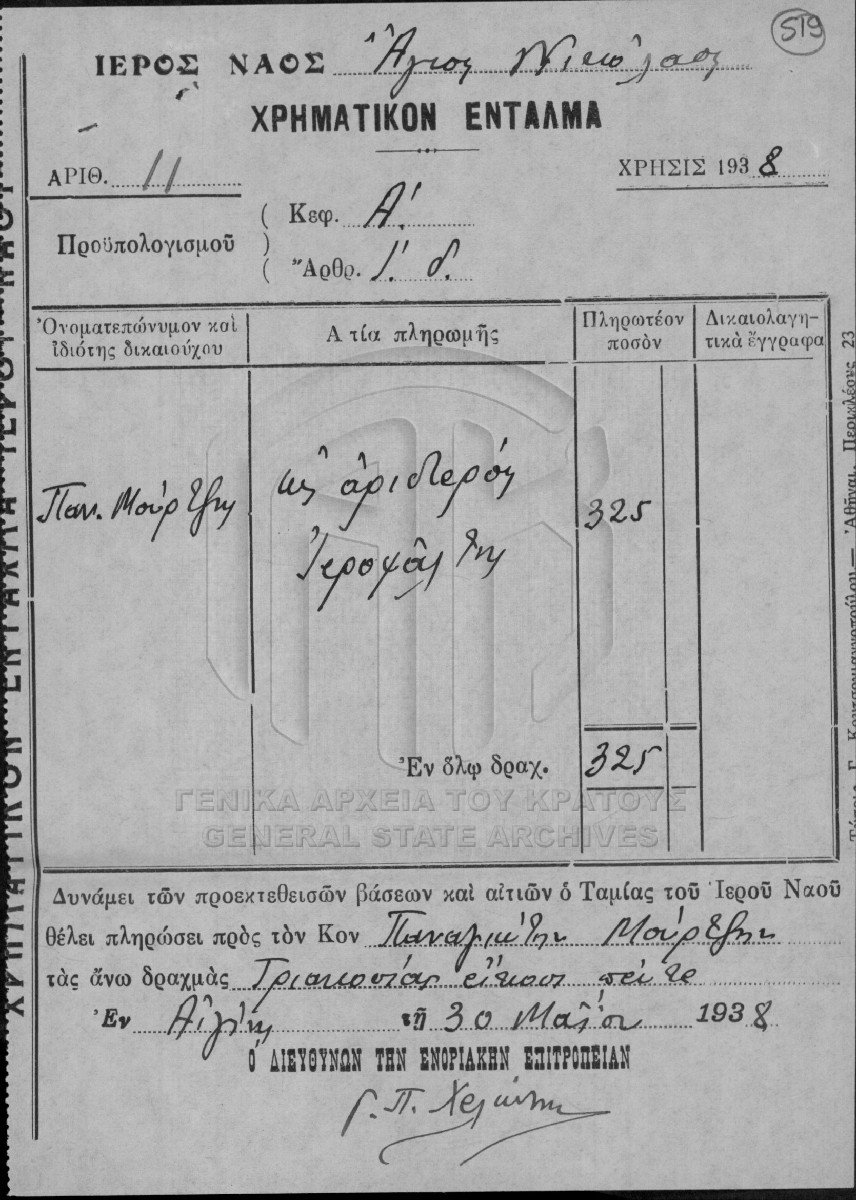 519
ΙΕΡΟΣ ΝΑΟΣ Ἅγιος Νικόλαος
ΧΡΗΜΑΤΙΚΟΝ ΕΝΤΑΛΜΑ
ΑΡΙΘ. 11
ΧΡΗΣΙΣ 1938
Προϋπολογισμοῦ
Κεφ. Α΄.
Ἄρθρ. 1. δ.
Ὀνοματεπώνυμον καὶ ἰδιότης δικαιούχου
Α τία πληρωμῆς
Πληρωτέον ποσὸν
Δικαιολαγητικὰ ἔγγραφα
Παν. Μούρτζης
ὡς ἀριστερός
Ἱεροψάλτης
325
Ἐν ὅλῳ δραχ. 325
ΓΕΝΙΚΑ ΑΡΧΕΙΑ ΤΟΥ ΚΡΑΤΟΥΣ
GENERAL STATE ARCHIVES
Δυνάμει τῶν προεκτεθεισῶν βάσεων καὶ αἰτιῶν ὁ Ταμίας τοῦ Ἱεροῦ Ναοῦ
θέλει πληρώσει πρὸς τὸν Κον Παναγιώτην Μούρτζην
τὰς ἄνω δραχμὰς Τριακοσίας εἴκοσι πέντε
Ἐν Αἰγίνῃ τῇ 30 Μαΐου 1938
Ὁ ΔΙΕΥΘΥΝΩΝ ΤΗΝ ΕΝΟΡΙΑΚΗΝ ΕΠΙΤΡΟΠΕΙΑΝ
Γ. Π. Χελιώτης
Ἀθῆναι, Περικλέους 23